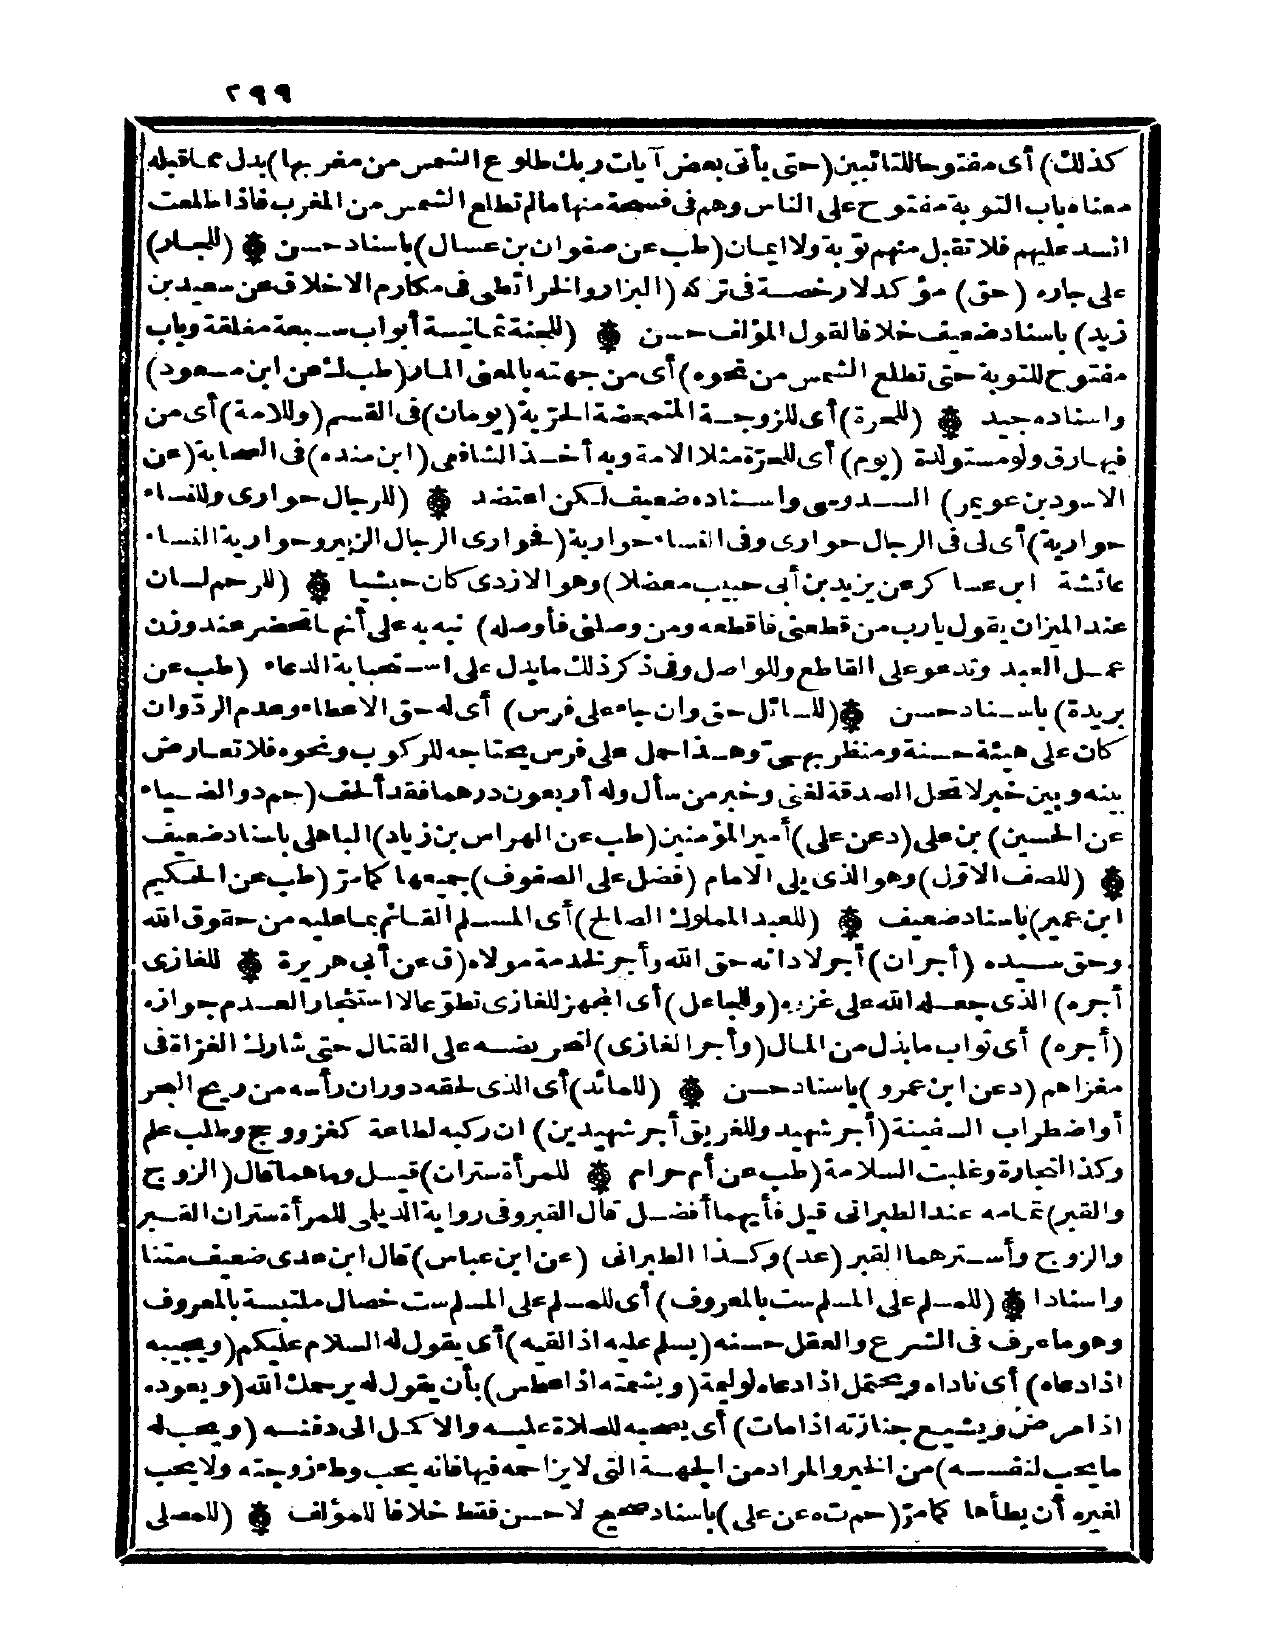 ٢٩٩
كذلك) أى مفتوحا للتائبين (حتى يأتى بعض آيات ربك طلوع الشمس من مغربها) بدل مما قبله
معناه باب التوبة مفتوح على الناس وهم فى فسحة منها مالم تطلع الشمس من المغرب فاذا طلعت
انسد عليهم فلا تقبل منهم توبة ولا ايمان (طب عن صفوان بن عسال) باسناد حسن ۞ (للجار)
على جاره (حق) مؤكد لا رخصة فى تركه (البزار والخرائطى فى مكارم الاخلاق عن سعيد بن
زيد) باسناد ضعيف خلافا لقول المؤلف حسن ۞ (للجنة ثمانية أبواب سبعة مغلقة وباب
مفتوح للتوبة حتى تطلع الشمس من نحوه) أى من جهته بالمعنى المار (طب ك عن ابن مسعود)
واسناده جيد ۞ (للحرة) أى للزوجة المتمحضة الحرية (يومان) فى القسم (وللامة) أى من
فيها رق ولو مستولدة (يوم) أى للحرة مثلا الامة وبه أخذ الشافعى (ابن منده) فى الصحابة (عن
الاسود بن عويمر) السدوسى واسناده ضعيف لكن اعتضد ۞ (للرجال حوارى وللنساء
حوارية) أى لى فى الرجال حوارى وفى النساء حوارية (فحوارى الرجال الزبير وحوارية النساء
عائشة ابن عساكر عن يزيد بن أبى حبيب معضلا) وهو الازدى كان حبشيا ۞ (للرحم لسان
عند الميزان يقول يارب من قطعنى فاقطعه ومن وصلنى فأوصله) نبه به على أنها تحضر عند وزن
عمل العبد وتدعو على القاطع وللواصل وفى ذكر ذلك ما يدل على استجابة الدعاء (طب عن
بريدة) باسناد حسن ۞ (للسائل حق وان جاء على فرس) أى له حق الاعطاء وعدم الرد وان
كان على هيئة حسنة ومنظر بهىّ وهذا حمل على فرس يحتاجه للركوب ونحوه فلا تعارض
بينه وبين خبر لا تحل الصدقة لغنى وخبر من سأل وله أربعون درهما فقد ألحف (حم د والضياء
عن الحسين) بن على (د عن على) أمير المؤمنين (طب عن الهراس بن زياد) الباهلى باسناد ضعيف
۞ (للصف الاوّل) وهو الذى يلى الامام (فضل على الصفوف) جميعها كما مرّ (طب عن الحكيم
ابن عمير) باسناد ضعيف ۞ (للعبد المملوك الصالح) أى المسلم القائم بما عليه من حقوق الله
وحق سيده (أجران) أجر لادائه حق الله وأجر لخدمة مولاه (ق عن أبى هريرة ۞ للغازى
أجره) الذى جعله الله على غزوه (وللجاعل) أى المجهز للغازى تطوّعا لا استئجارا لعدم جوازه
(أجره) أى ثواب ما بذل من المال (وأجر الغازى) لتحريضه على القتال حتى شارك الغزاة فى
مغزاهم (د عن ابن عمرو) باسناد حسن ۞ (للمائد) أى الذى لحقه دوران رأسه من ريح البحر
أو اضطراب السفينة (أجر شهيد وللغريق أجر شهيدين) ان ركبه لطاعة كغزو وحج وطلب علم
وكذا التجارة وغلبت السلامة (طب عن أم حرام ۞ للمرأة ستران) قيل وما هما قال (الزوج
والقبر) تمامه عند الطبرانى قيل فأيهما أفضل قال القبر وفى رواية الديلى للمرأة ستران القبر
والزوج وأسترهما القبر (عد) وكذا الطبرانى (عن ابن عباس) قال ابن عدى ضعيف متنا
واسنادا ۞ (للمسلم على المسلم ست بالمعروف) أى للمسلم على المسلم ست خصال ملتبسة بالمعروف
وهو ما عرف فى الشرع والعقل حسنه (يسلم عليه اذا لقيه) أى يقول له السلام عليكم (ويجيبه
اذا دعاه) أى ناداه ويحتمل اذا دعاه لوليمة (ويشمته اذا عطس) بأن يقول له يرحمك الله (ويعوده
اذا مرض ويشيع جنازته اذا مات) أى يصحبه للصلاة عليه والاكمل الى دفنه (ويحب له
ما يحب لنفسه) من الخير والمراد من الجهة التى لا يزاحمه فيها فانه يحب وطء زوجته ولا يحب
لغيره أن يطأها كما مرّ (حم ت ه عن على) باسناد صحيح لا حسن فقط خلافا للمؤلف ۞ (للمصلى